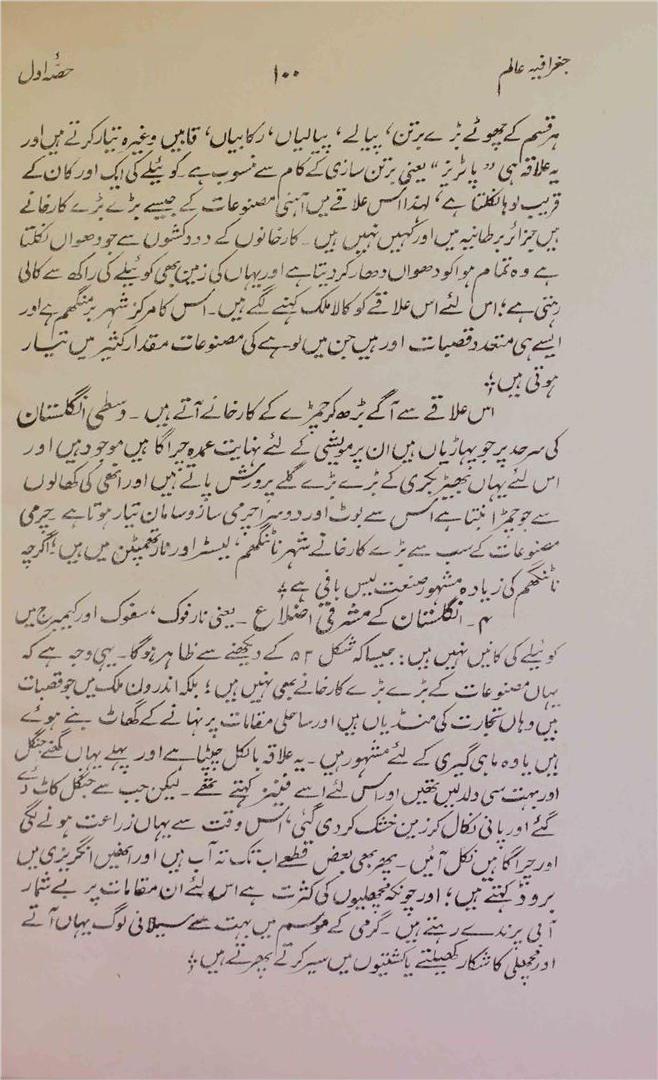 جغرافیہ عالم ۱۰۰ حصہ اول
ہر قسم کے چھوٹے بڑے برتن، پیالے، پیالیاں، رکابیاں، قابیں وغیرہ تیار کرتے ہیں اور
یہ علاقہ ہی ”پاٹریز“ یعنی برتن سازی کے کام سے منسوب ہے۔ کوئیلے کی ایک اور کان کے
قریب لوہا نکلتا ہے، لہذا اس علاقے میں آہنی مصنوعات کے جیسے بڑے بڑے کارخانے
ہیں جزائر برطانیہ میں اور کہیں نہیں ہیں۔ کارخانوں کے دودکشوں سے جو دھواں نکلتا
ہے وہ تمام ہوا کو دھواں دھار کر دیتا ہے اور یہاں کی زمین بھی کوئیلے کی راکھ سے کالی
رہتی ہے؛ اس لئے اس علاقے کو کالا ملک کہنے لگے ہیں۔ اس کا مرکز شہر برمنگھم ہے اور
ایسے ہی متعدد قصبات اور ہیں جن میں لوہے کی مصنوعات مقدار کثیر میں تیار
ہوتی ہیں؛
اس علاقے سے آگے بڑھ کر چمڑے کے کارخانے آتے ہیں۔ وسطی انگلستان
کی سرحد پر جو پہاڑیاں ہیں ان پر مویشی کے لئے نہایت عمدہ چراگاہیں موجود ہیں اور
اس لئے یہاں بھیڑ بکری کے بڑے بڑے گلے پرورش پاتے ہیں اور انھی کی کھالوں
سے جو چمڑا بنتا ہے اس سے بوٹ اور دوسرا چرمی ساز و سامان تیار ہوتا ہے۔ چرمی
مصنوعات کے سب سے بڑے کارخانے شہر ناٹنگھم، لیسٹر اور نارتھمپٹن میں ہیں؛ اگرچہ
ناٹنگھم کی زیادہ مشہور صنعت لیس بافی ہے؛
۴۔ انگلستان کے مشرقی اضلاع۔ یعنی نارفوک، سفوک اور کیمبرج میں
کوئیلے کی کانیں نہیں ہیں: جیسا کہ شکل ۵۲ کے دیکھنے سے ظاہر ہوگا۔ یہی وجہ ہے کہ
یہاں مصنوعات کے بڑے بڑے کارخانے بھی نہیں ہیں؛ بلکہ اندرون ملک میں جو قصبات
ہیں وہاں تجارت کی منڈیاں ہیں اور ساحلی مقامات پر نہانے کے گھاٹ بنے ہوئے
ہیں یا وہ ماہی گیری کے لئے مشہور ہیں۔ یہ علاقہ بالکل چپٹا ہے اور پہلے یہاں گھنے جنگل
اور بہت سی دلدلیں تھیں اور اس لئے اسے فینز کہتے تھے۔ لیکن جب سے جنگل کاٹ دئے
گئے اور پانی نکال کر زمین خشک کر دی گئی، اس وقت سے یہاں زراعت ہونے لگی
اور چراگاہیں نکل آئیں۔ پھر بھی بعض قطعے اب تک تہ آب ہیں اور انھیں انگریزی میں
بروڈ کہتے ہیں؛ اور چونکہ مچھلیوں کی کثرت ہے اس لئے ان مقامات پر بے شمار
آبی پرندے رہتے ہیں۔ گرمی کے موسم میں بہت سے سیلانی لوگ یہاں آتے
اور مچھلی کا شکار کھیلتے یا کشتیوں میں سیر کرتے پھرتے ہیں؛